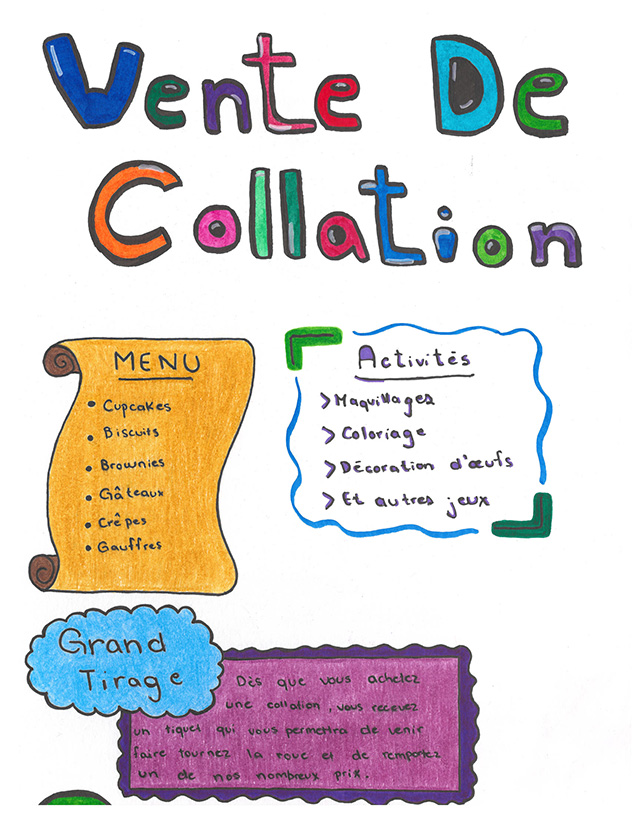 Vente De
Collation
MENU
• Cupcakes
• Biscuits
• Brownies
• Gâteaux
• Crêpes
• Gauffres
Activités
> Maquillages
> Coloriage
> Décoration d'œufs
> Et autres jeux
Grand
Tirage
Dès que vous achetez
une collation, vous recevez
un tiquet qui vous permettra de venir
faire tournez la roue et de remportez
un de nos nombreux prix.